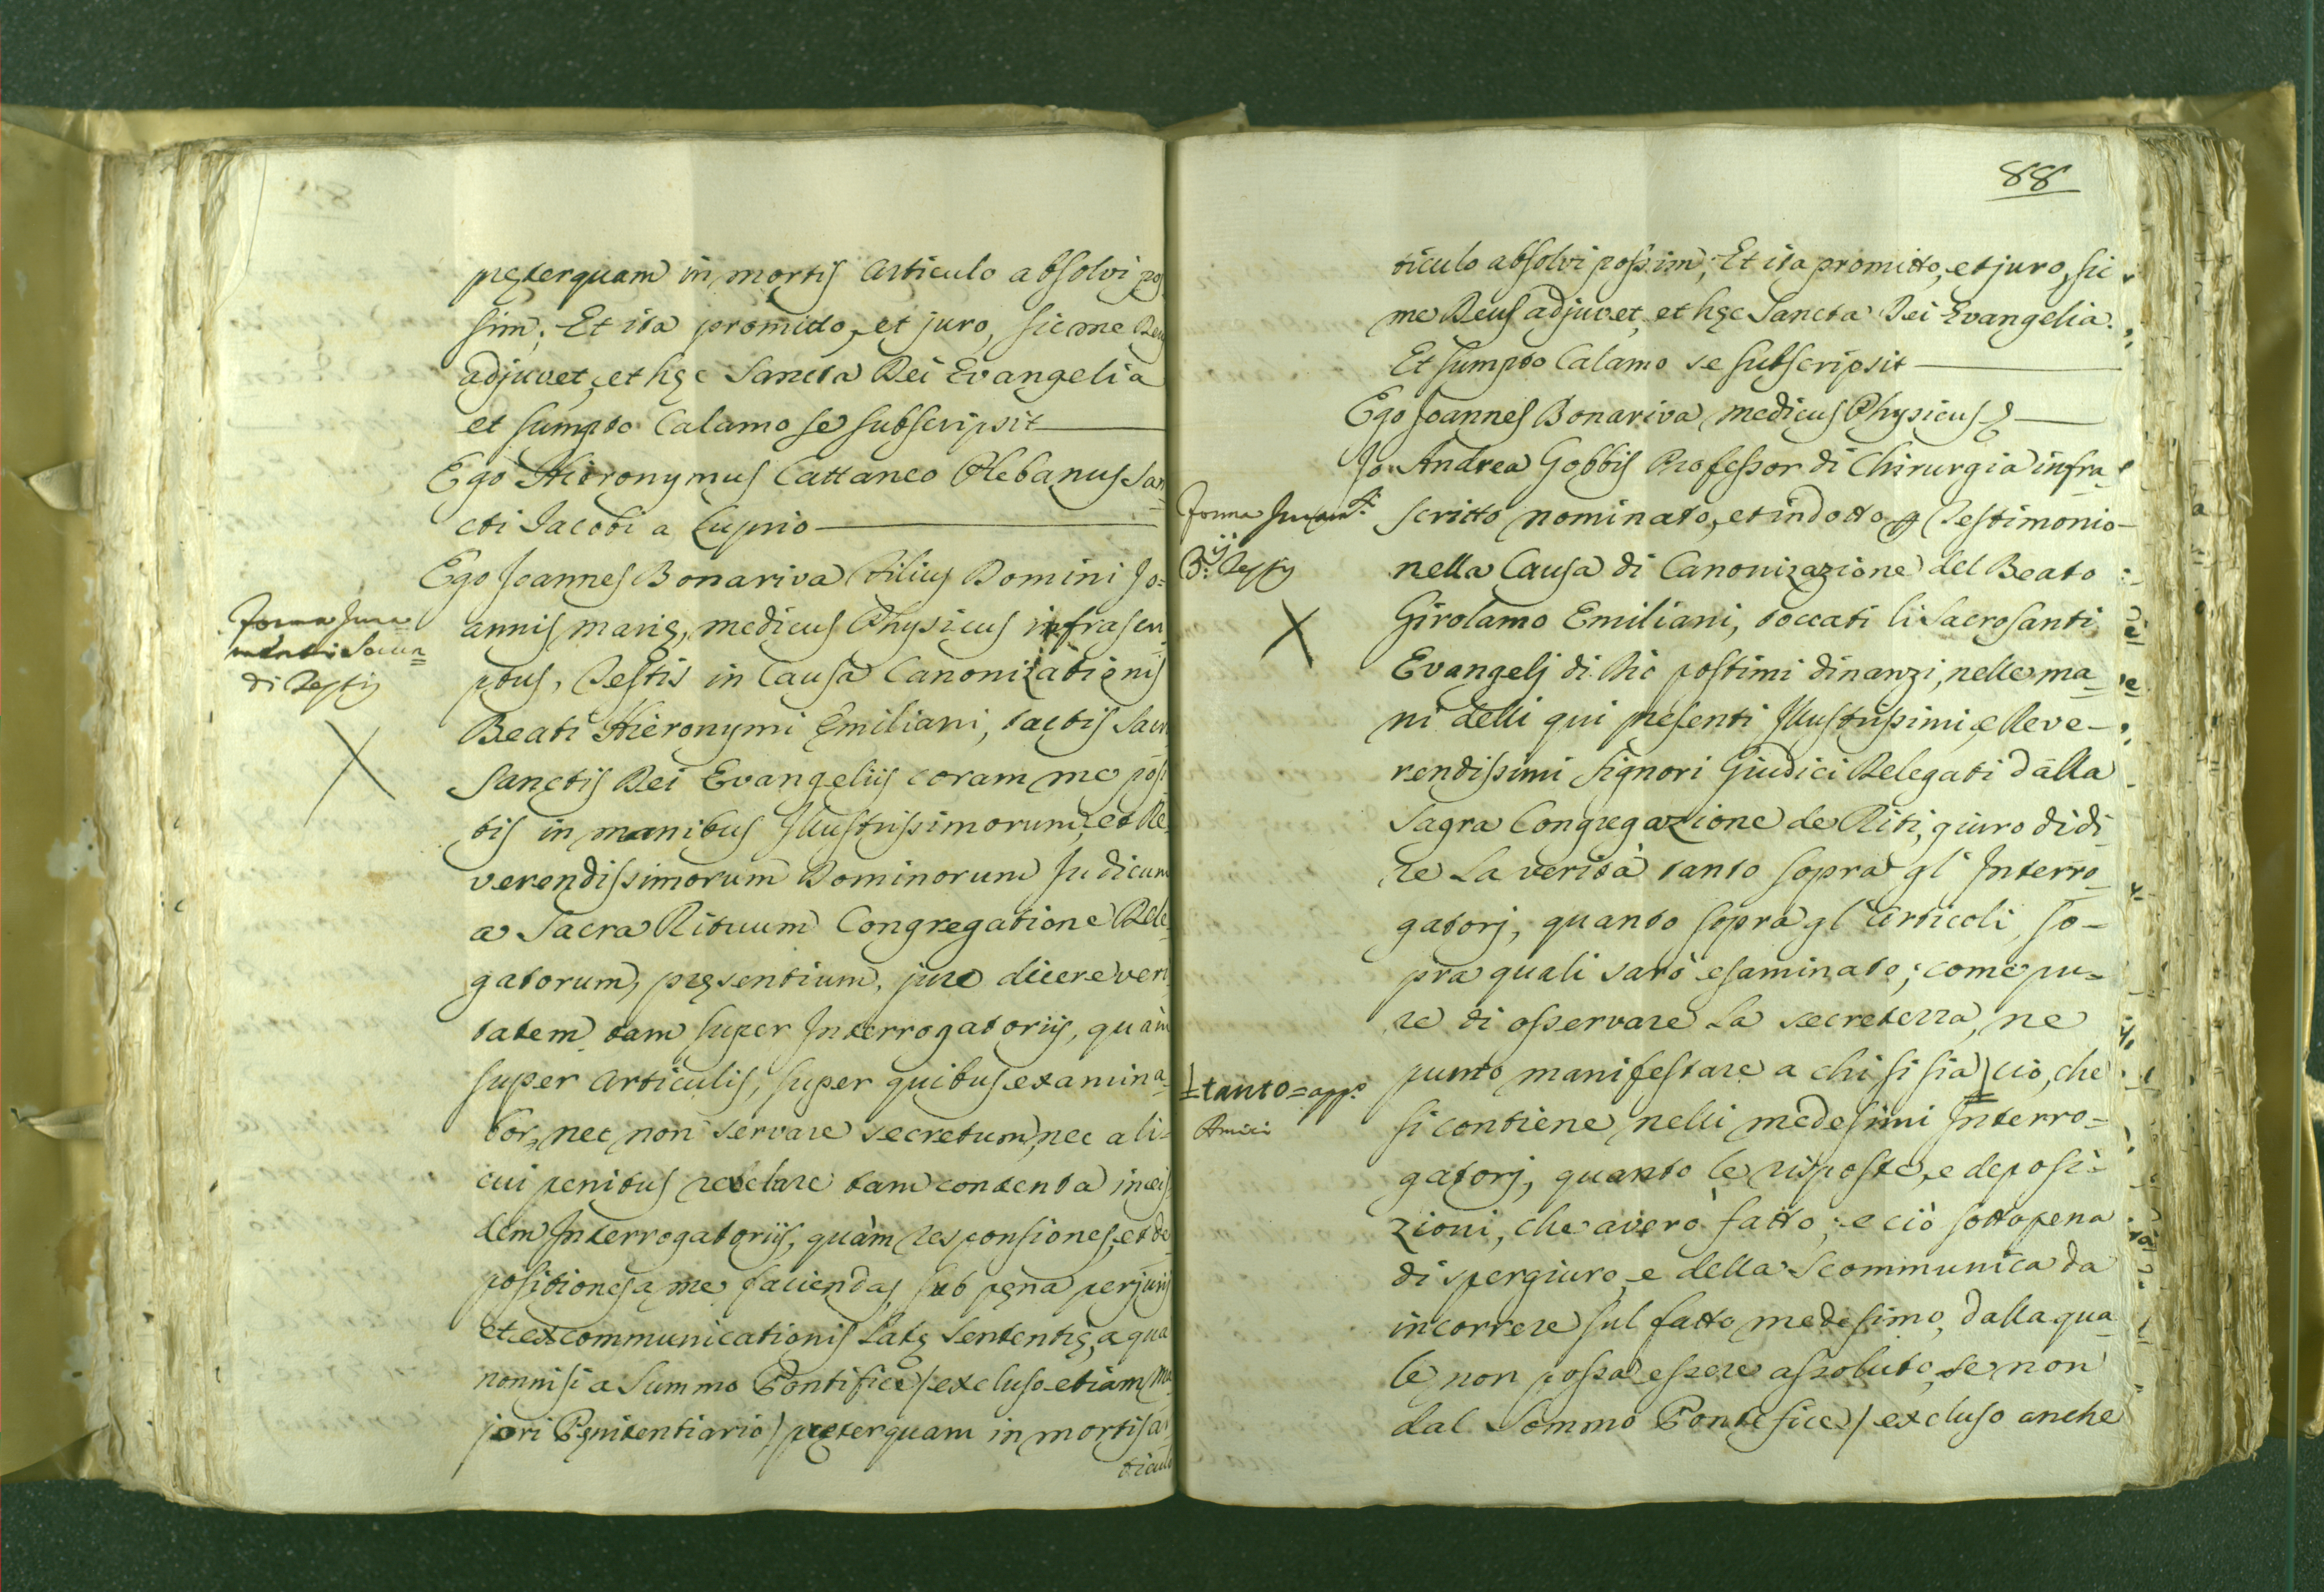 pręterquam in mortis articulo absolvi pos
sim; Et ita promitto, et juro, sic me Deus
adjuvet, et hęc Sancta Dei Evangelia
et sumpto Calamo se subscripsit
Ego Hieronymus Cattaneo Plebanus San=
cti Jacobi a Luprio
Ego Joannes Bonariva Filius Domini Jo=
annis marię, medicus Physicus infrascri
ptus, Testis in Causa Canonizationis
Beati Hieronymi Emiliani, tactis Sacro
Sanctis Dei Evangeliis coram me posi
tis in manibus Illustrissimorum, et Re
verendissimorum Dominorum Judicum
a Sacra Rituum Congregatione Dele=
gatorum, pręsentium, juro dicere veri
tatem tam super Interrogatoriis, quàm
super articulis, super quibus examina=
bor, nec non servare secretum, nec ali=
cui penitus revelare tam contenta in eis
dem Interrogatoriis, quàm responsiones, et de=
positiones a me faciendas, sub pęna perjurij
et excommunicationis Latę sententię, a qua
nonnisi a Summo Pontifice / excluso etiam Ma
jori Pęnitentiario / pręterquam in mortis ar
ticulo
Forma Jura
menti Secun=
di Testis
88
ticulo absolvi possim; Et ita promitto, et juro, sic
me Deus adjuvet, et hęc Sancta Dei Evangelia.
Et sumpto Calamo se subscripsit
Ego Joannes Bonariva medicus Physicus
Jo: Andrea Gobbis Professor di Chirurgia infra=
scritto nominato, et indotto per Testimonio
nella Causa di Canonizazione del Beato
Girolamo Emiliani, toccati li Sacrosanti
Evangelj di Dio postimi dinanzi, nelle ma=
ni delli qui presenti Illustrissimi, e Reve=
rendissimi Signori Giudici Delegati dalla
Sagra Congregazione de Riti, giuro di di
re La verità tanto sopra gl' Interro=
gatorj, quanto sopra gl' Articoli, so=
pra quali sarò esaminato; come pu=
re di osservare La secretezza, ne
punto manifestare a chi si sia / ciò, che
si contiene nelli medesimi Interro=
gatorj, quanto le risposte, e deposi=
zioni, che averò fatto; e ciò sotto pena
di spergiuro, e della Scommunica da
incorrere sul fatto medesimo, dalla qua=
le non possa essere assoluto, se non
dal Sommo Pontefice / excluso anche
Forma Juramti
3ij Testis
tanto = appo
Amici